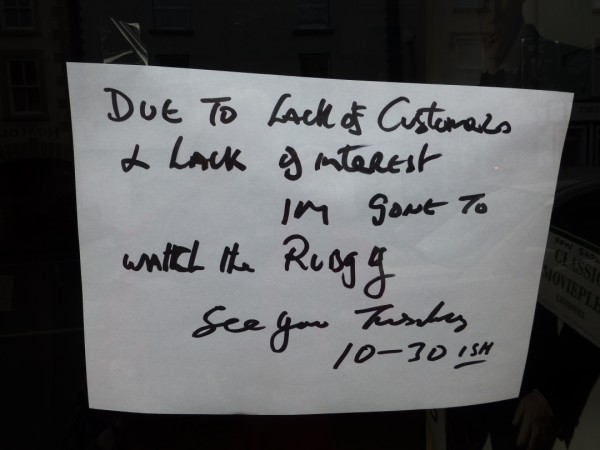 DUE TO Lack of Customers
& LACK of interest
IM GONE TO
watch the RUBGY
See you Tuesday
10-30 ISH
CLASSIC
MOVIEPLE